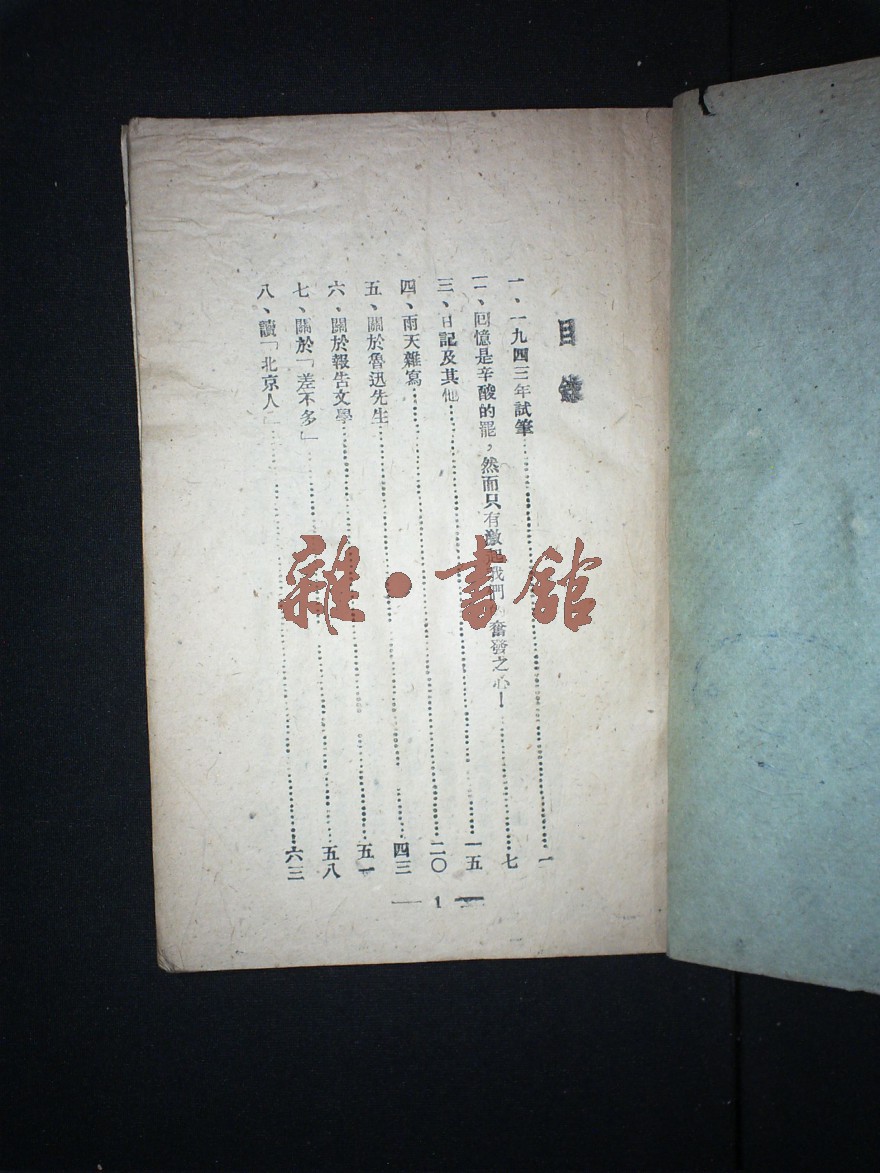 目錄
一、一九四三年試筆……一
二、回憶是辛酸的罷，然而只有激起我們的奮發之心！……七
三、日記及其他……一五
四、雨天雜寫……二〇
五、關於魯迅先生……四三
六、關於報告文學……五一
七、關於「差不多」……五八
八、讀「北京人」……六三
— 1 —
雜·書館